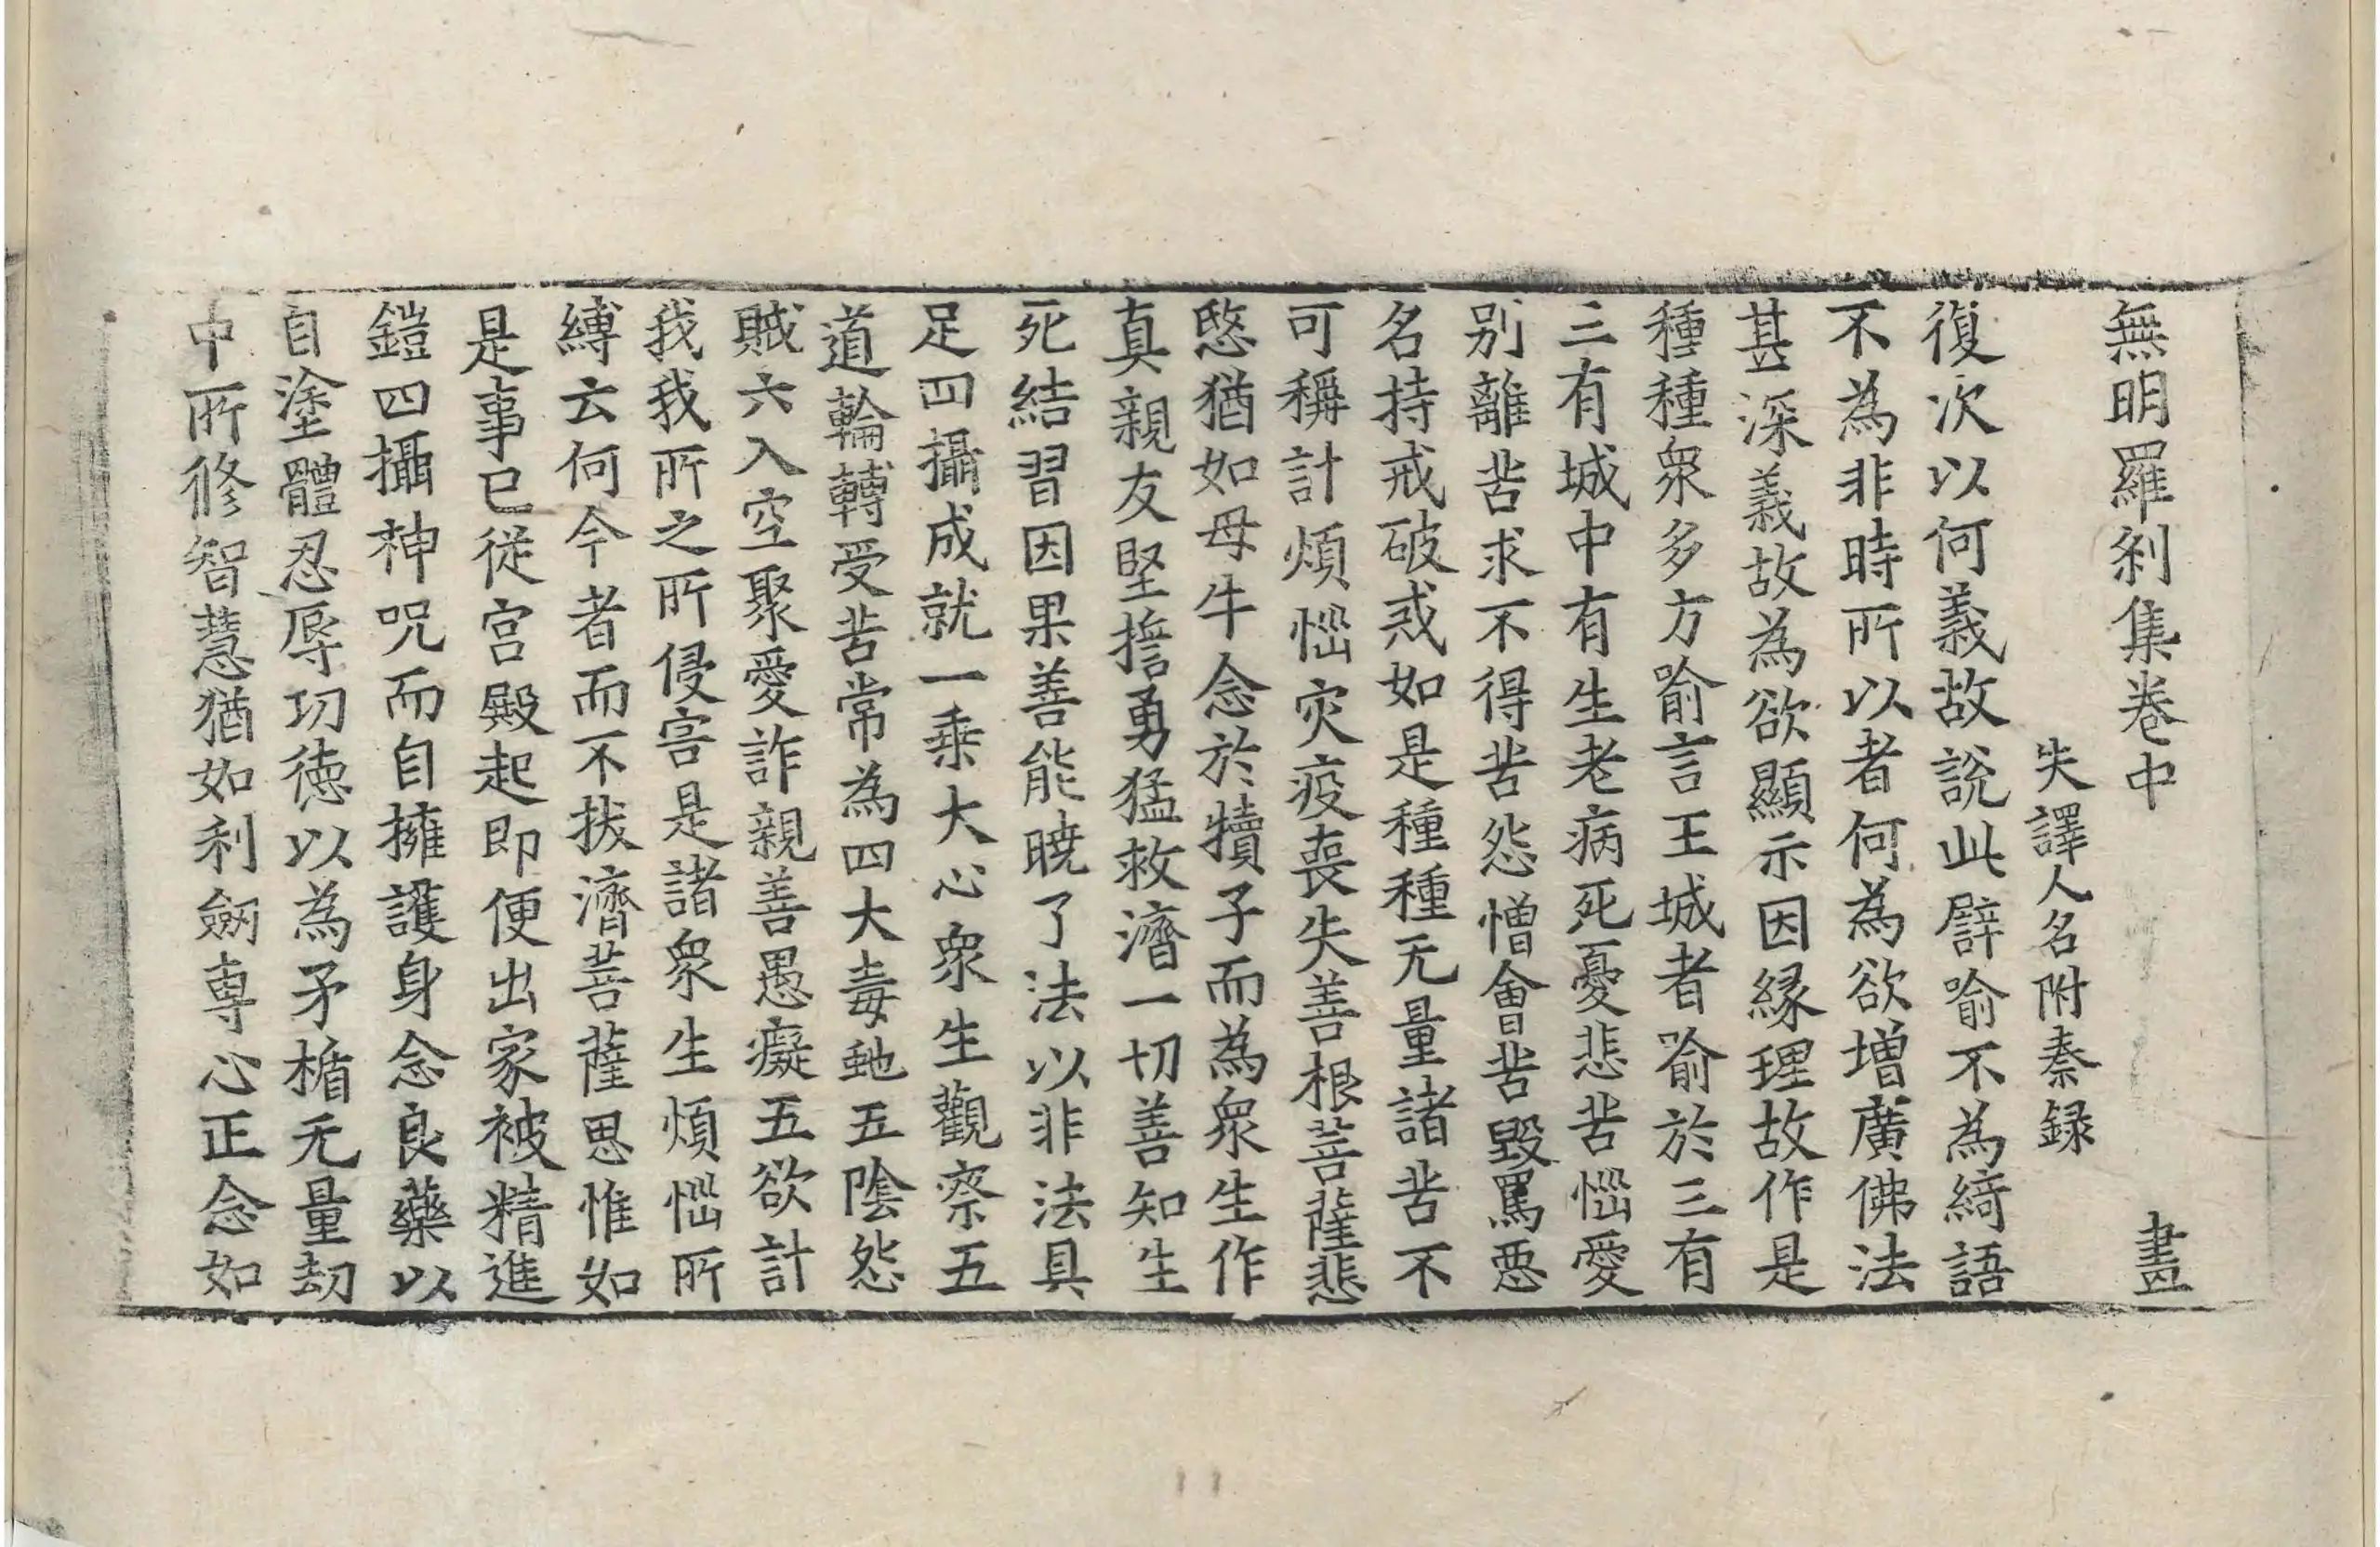 無明羅剎集卷中 畫
失譯人名附秦録
復次以何義故說此譬喻不為綺語
不為非時所以者何為欲增廣佛法
甚深義故為欲顯示因緣理故作是
種種衆多方喻言王城者喻於三有
三有城中有生老病死憂悲苦惱愛
别離苦求不得苦怨憎會苦毀罵惡
名持戒破戒如是種種无量諸苦不
可稱計煩惱灾疫喪失善根菩薩悲
愍猶如母牛念於犢子而為衆生作
真親友堅擔勇猛救濟一切善知生
死結習因果善能曉了法以非法具
足四攝成就一乗大心衆生觀察五
道輪轉受苦常為四大毒虵五陰怨
賊六入空聚愛詐親善愚癡五欲計
我我所之所侵害是諸衆生煩惱所
縛云何今者而不拔濟菩薩思惟如
是事已從宫殿起即便出家被精進
鎧四攝神呪而自擁護身念良藥以
自塗體忍辱功徳以為矛楯无量劫
中所修智慧猶如利劒専心正念如